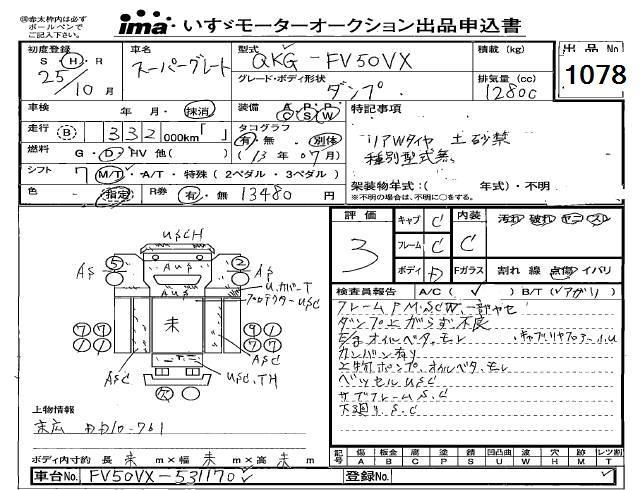 ㊟赤太枠内は必ず
ボールペンで
ご記入下さい。
ima・いすゞモーターオークション出品申込書
初度登録 車名 型式 積載 (kg) 出品No
S・H・R スーパーグレート QKG-FV50VX 1078
25/10月 グレード・ボディ形状 ダンプ 排気量 (cc) 12800
車検 年 月・抹消 装備 A・P・P C・S・W 特記事項
走行 B 332000km「 」 タコグラフ 有・無 別体 リアWタイヤ 土砂禁
燃料 G・D・HV 他( ) (13年07月) 種別型式無
シフト 7 M/T・A/T・特殊 (2ペダル・3ペダル)
架装物年式:( 年式)・不明
色 指定 R券 有・無 13480円 ※不明の場合は、不明に○をする。
評価 3 キャブ C 内装 C 汚れ 破れ ヤニ スレ
フレーム C
ボディ D Fガラス 割れ 線 点傷 イバリ
検査員報告 A/C( ✓ ) B/T(
フレームPM.SCW.一部ヤセ
ダンプ上がらず不良
E/g オイルベタ.モレ
カンバン有り
上物ポンプ.オイルベタ.モレ
ベッセルUSC
サブフレームS.C
下廻り.S.C
USCH
⑤ AS AUS ② AP
U.カバーT
プロテクターUSC
未
ASC ASC
USC.TH
欠
上物情報
ボディ内寸約 長 未 m×幅 未 m×高 未 m
記号 傷 板金 腐 塗 錆 凹凸曲 波 穴 跡 レツ割
A B C P S U W H M T
車台No. FV50VX-531170 登録No.